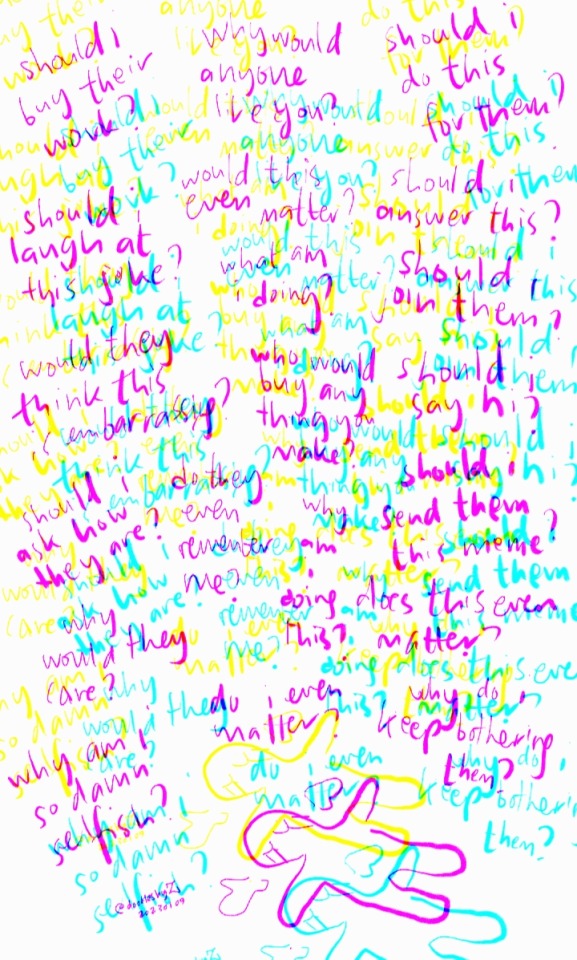 should i
buy their
work?
should i
laugh at
this joke?
would they
think this
is embarrassing?
should i
ask how
they are?
why
would they
care?
why am i
so damn
selfish?
why would
anyone
like you?
would this
even matter?
what am i
doing?
who would
buy any
thing you
make?
do they
even
remember
me?
why
am i
doing
this?
do i even
matter?
should i
do this
for them?
should i
answer this?
should i
join them?
should i
say hi?
should i
send them
this meme?
does this even
matter?
why do i
keep bothering
them?